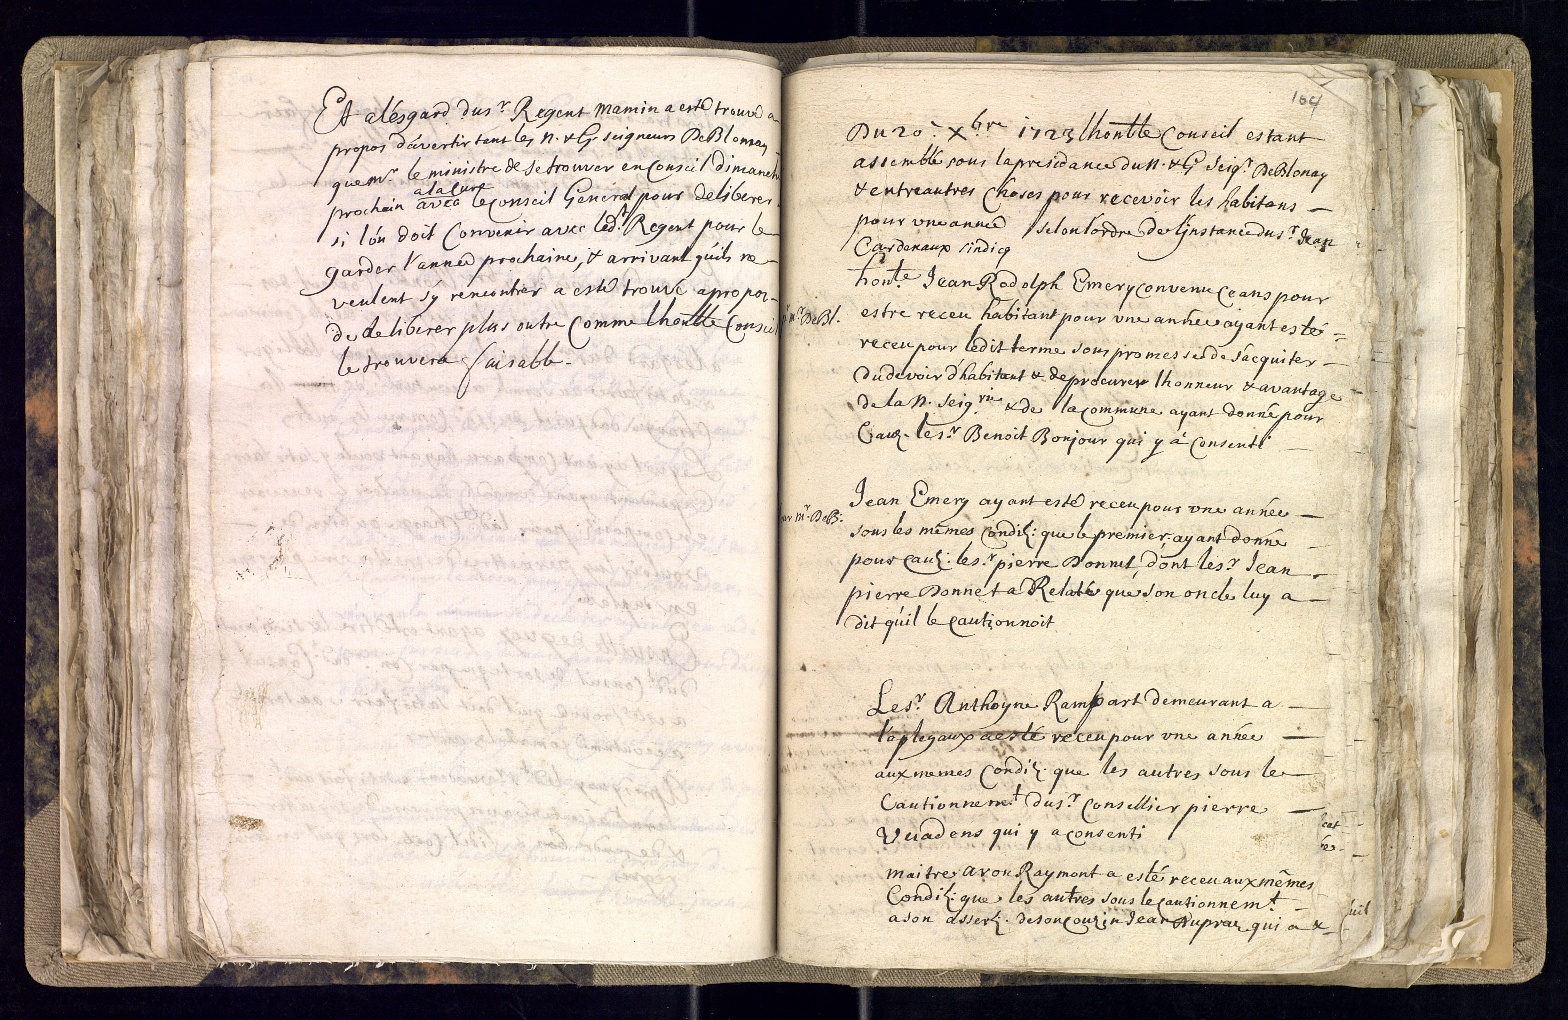 Et a lésgard du sr Regent Mamin a esté trouvé a
propos d'avertir tent les N. & G. seigneurs De Blonnay
que mr. le ministre de se trouver en Conseil dimanche
prochain a la Cure avec le Conseil General pour deliberer
si l'on doit Convenir avec led.t Regent pour le
garder l'année prochaine, & arrivant quils ne
veulent s'y rencontrer a esté trouvé a propos
de deliberer plus outre Comme lhonble Conseil
le trouvera faisable.
164
Du 20e. Xbre 1723 lhonble Conseil estant
assemblé sous la presidance du N. & G. Seigr. De Blonay
& entre autres Choses pour recevoir les habitans
pour une année selon l'ordre de l'instance du sr Jean
Cardenaux sindiq
honte. Jean Rodolph Emery convenu Ceans pour
estre receu habitant pour une année ayant esté
mr. DeBl.
receu pour ledit terme sous promesse de s'acquiter
du devoir d'habitent & de procurer lhonneur & avantage
de la N. Seigrie & de la Commune ayant donné pour
Cauz. le sr. Benoit Bonjour qui y a Consenti
Jean Emery ayant esté receu pour une année
mr. DeB.
sous les mémes Condiz: que le premier ayant donné
pour Cauz: le sr. pierre Donnet, dont le sr. Jean
pierre Donnet a Relaté que son oncle luy a
dit qu'il le Cautionnoit
Le sr. Anthoyne Rampart demeurant a
la pleyaux a esté receu pour une année
aux memes Condiz: que les autres sous le
Cautionnemt du sr. Conseillier pierre
qui y a consenti
maitre Raymont a esté receu aux mémes
Condiz: que les autres sous le Cautionnemt
a son asserz: de son Couzin Jean Dupraz qui a &